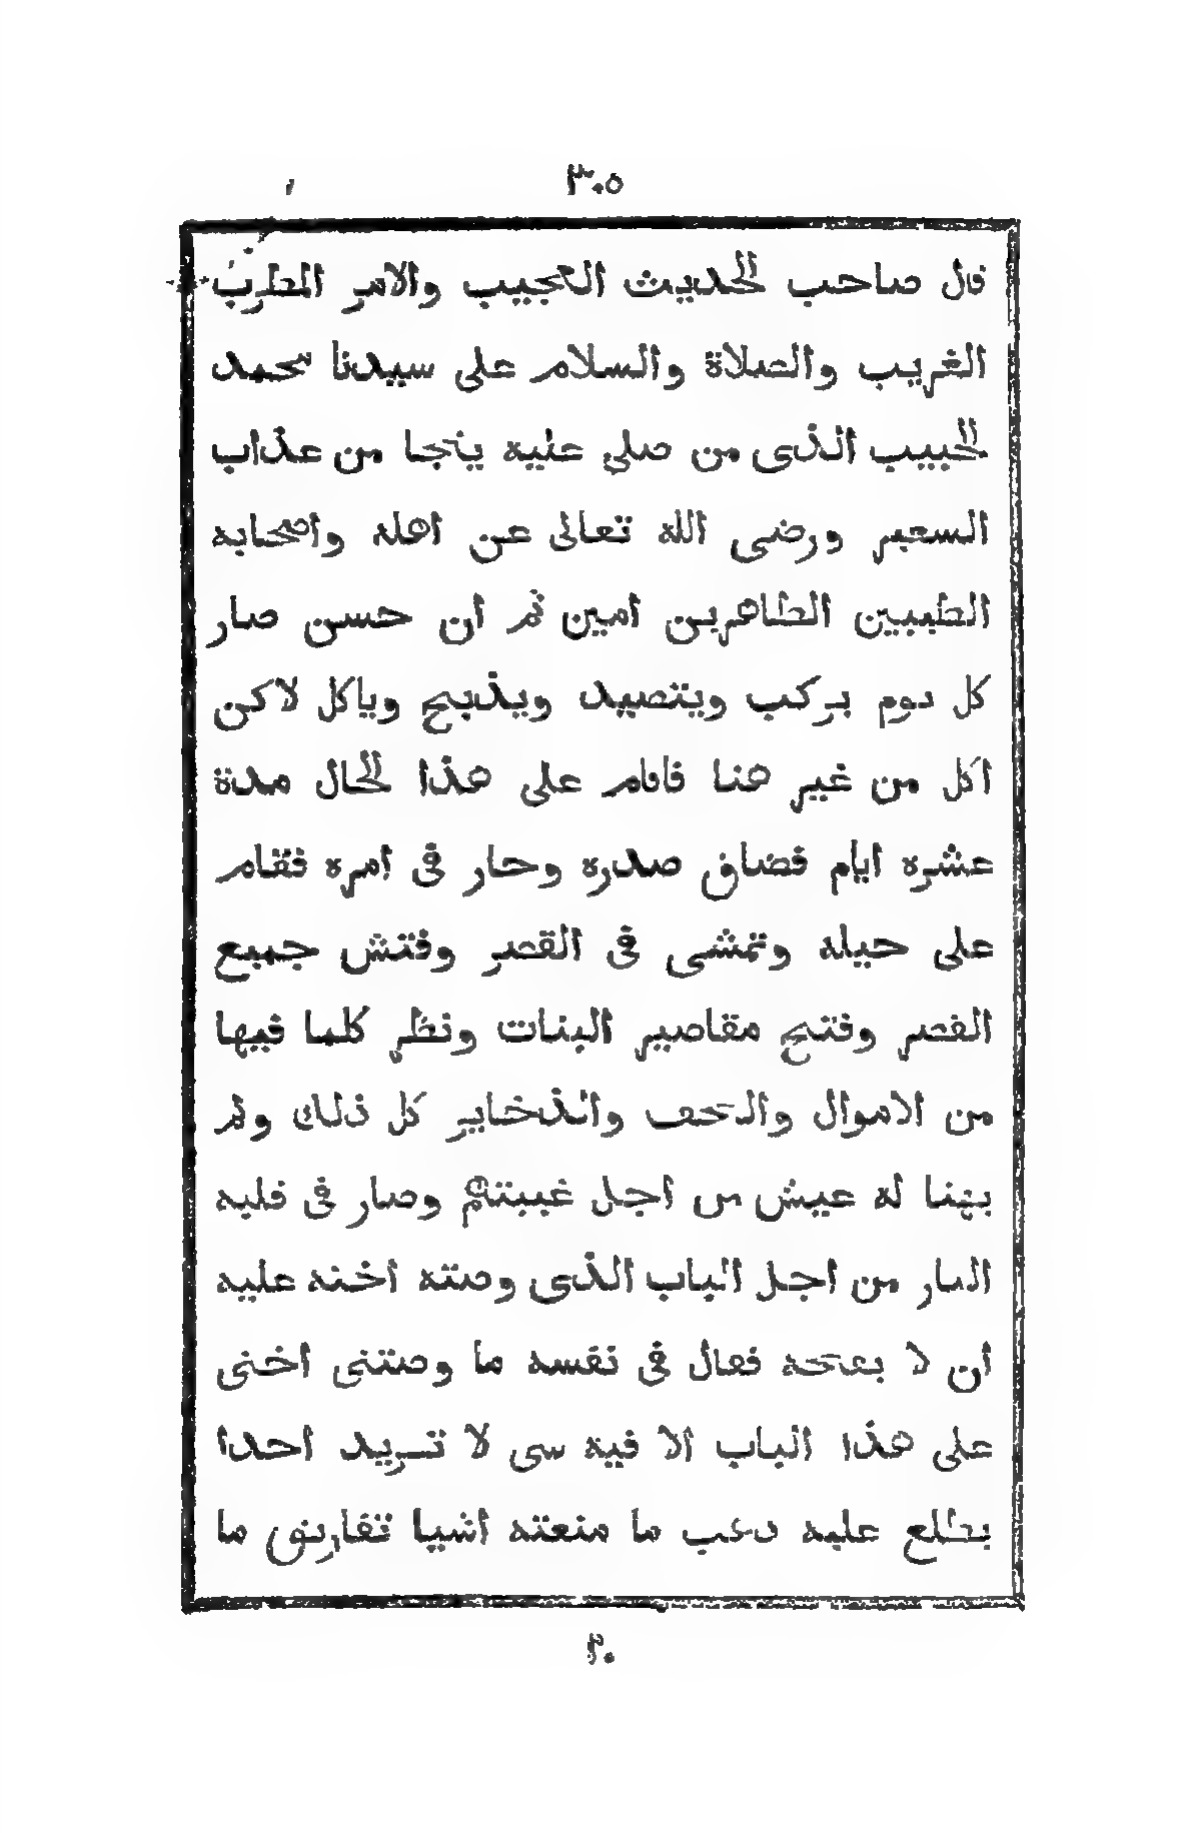 ٣٠٥
قال صاحب الحديث العجيب والامر المطرب
الغريب والصلاة والسلام على سيدنا محمد
الحبيب الذى من صلى عليه ينجا من عذاب
السعير ورضى الله تعالى عن اهله واصحابه
الطيبين الطاهرين امين ثم ان حسن صار
كل يوم يركب ويتصيد ويذبح وياكل لاكن
اكل من غير هنا فاقام على هذا الحال مدة
عشره ايام فضاق صدره وحار فى امره فقام
على حيله وتمشى فى القصر وفتش جميع
القصر وفتح مقاصير البنات ونظر كلما فيها
من الاموال والتحف والذخاير كل ذلك ولم
يهنا له عيش من اجل غيبتهم وصار فى قلبه
النار من اجل الباب الذى وصته اخته عليه
ان لا يفتحه فقال فى نفسه ما وصتنى اختى
على هذا الباب الا فيه سى لا تريد احدا
يطلع عليه ما منعته اشيا تفارنى ما
٢٠